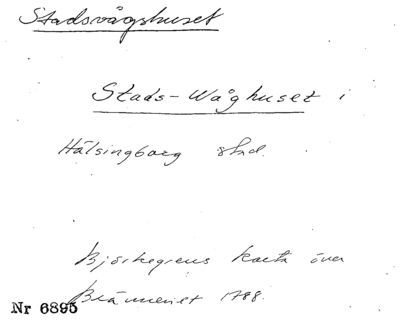 Stadsvågshuset
Stads-Wåghuset i
Hälsingborg stad.
Björkegrens karta över
Bränneriet 1788.
Nr 6895